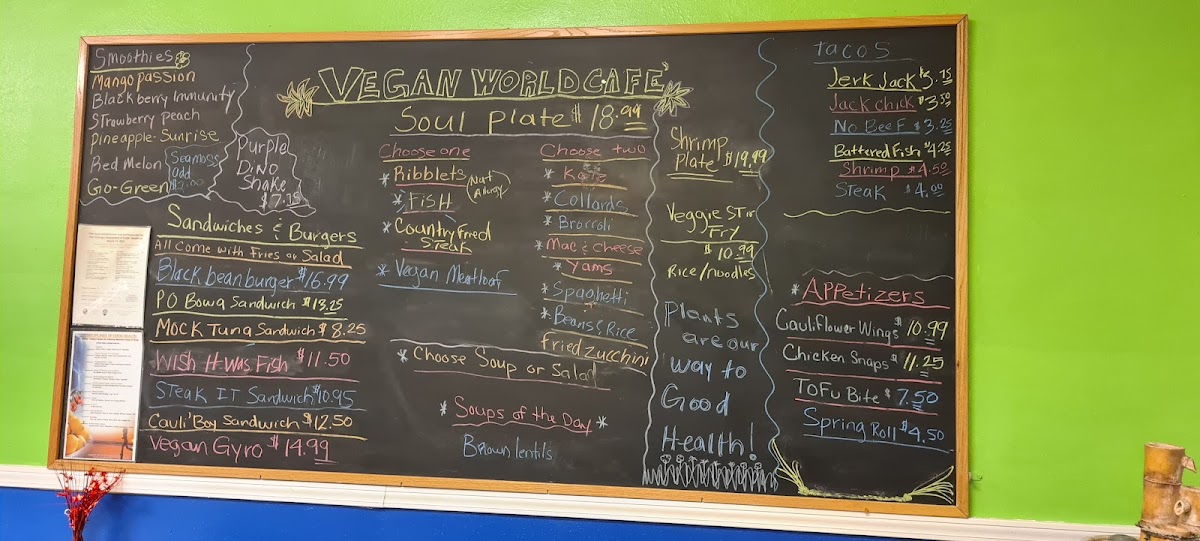 Smoothies
Mango passion
Blackberry Immunity
Strawberry Peach
Pineapple-Sunrise
Red Melon
Go-Green
Seamoss
add
Purple
DiNo
Shake
$7.15
Sandwiches & Burgers
All Come with Fries or Salad
Black bean burger $16.99
PO Bowa Sandwich $13.25
Mock Tuna Sandwich $8.25
Wish It Was Fish $11.50
Steak IT Sandwich $10.95
Cauli'Boy Sandwich $12.50
Vegan Gyro $14.99
VEGAN WORLD CAFE'
Soul Plate $18.99
Choose one
* Ribblets
Nut
Allergy
* FisH
* Country Fried
Steak
* Vegan Meatloaf
Choose two
* Kale
* Collards
* Broccoli
* Mac & Cheese
* Yams
* Spaghetti
* Beans & Rice
Fried Zucchini
* Choose Soup or Salad
* Soups of the Day *
Brown lentils
Shrimp
Plate $19.99
Veggie STir
Fry
$10.99
Rice/noodles
Plants
are our
way to
Good
Health!
Tacos
Jerk Jack $3.75
Jack chick $3.50
No BeeF $3.25
Battered Fish $4.25
Shrimp $4.50
Steak $4.00
* Appetizers
Cauliflower Wings $10.99
Chicken Snaps $11.25
ToFu Bite $7.50
Spring Roll $4.50